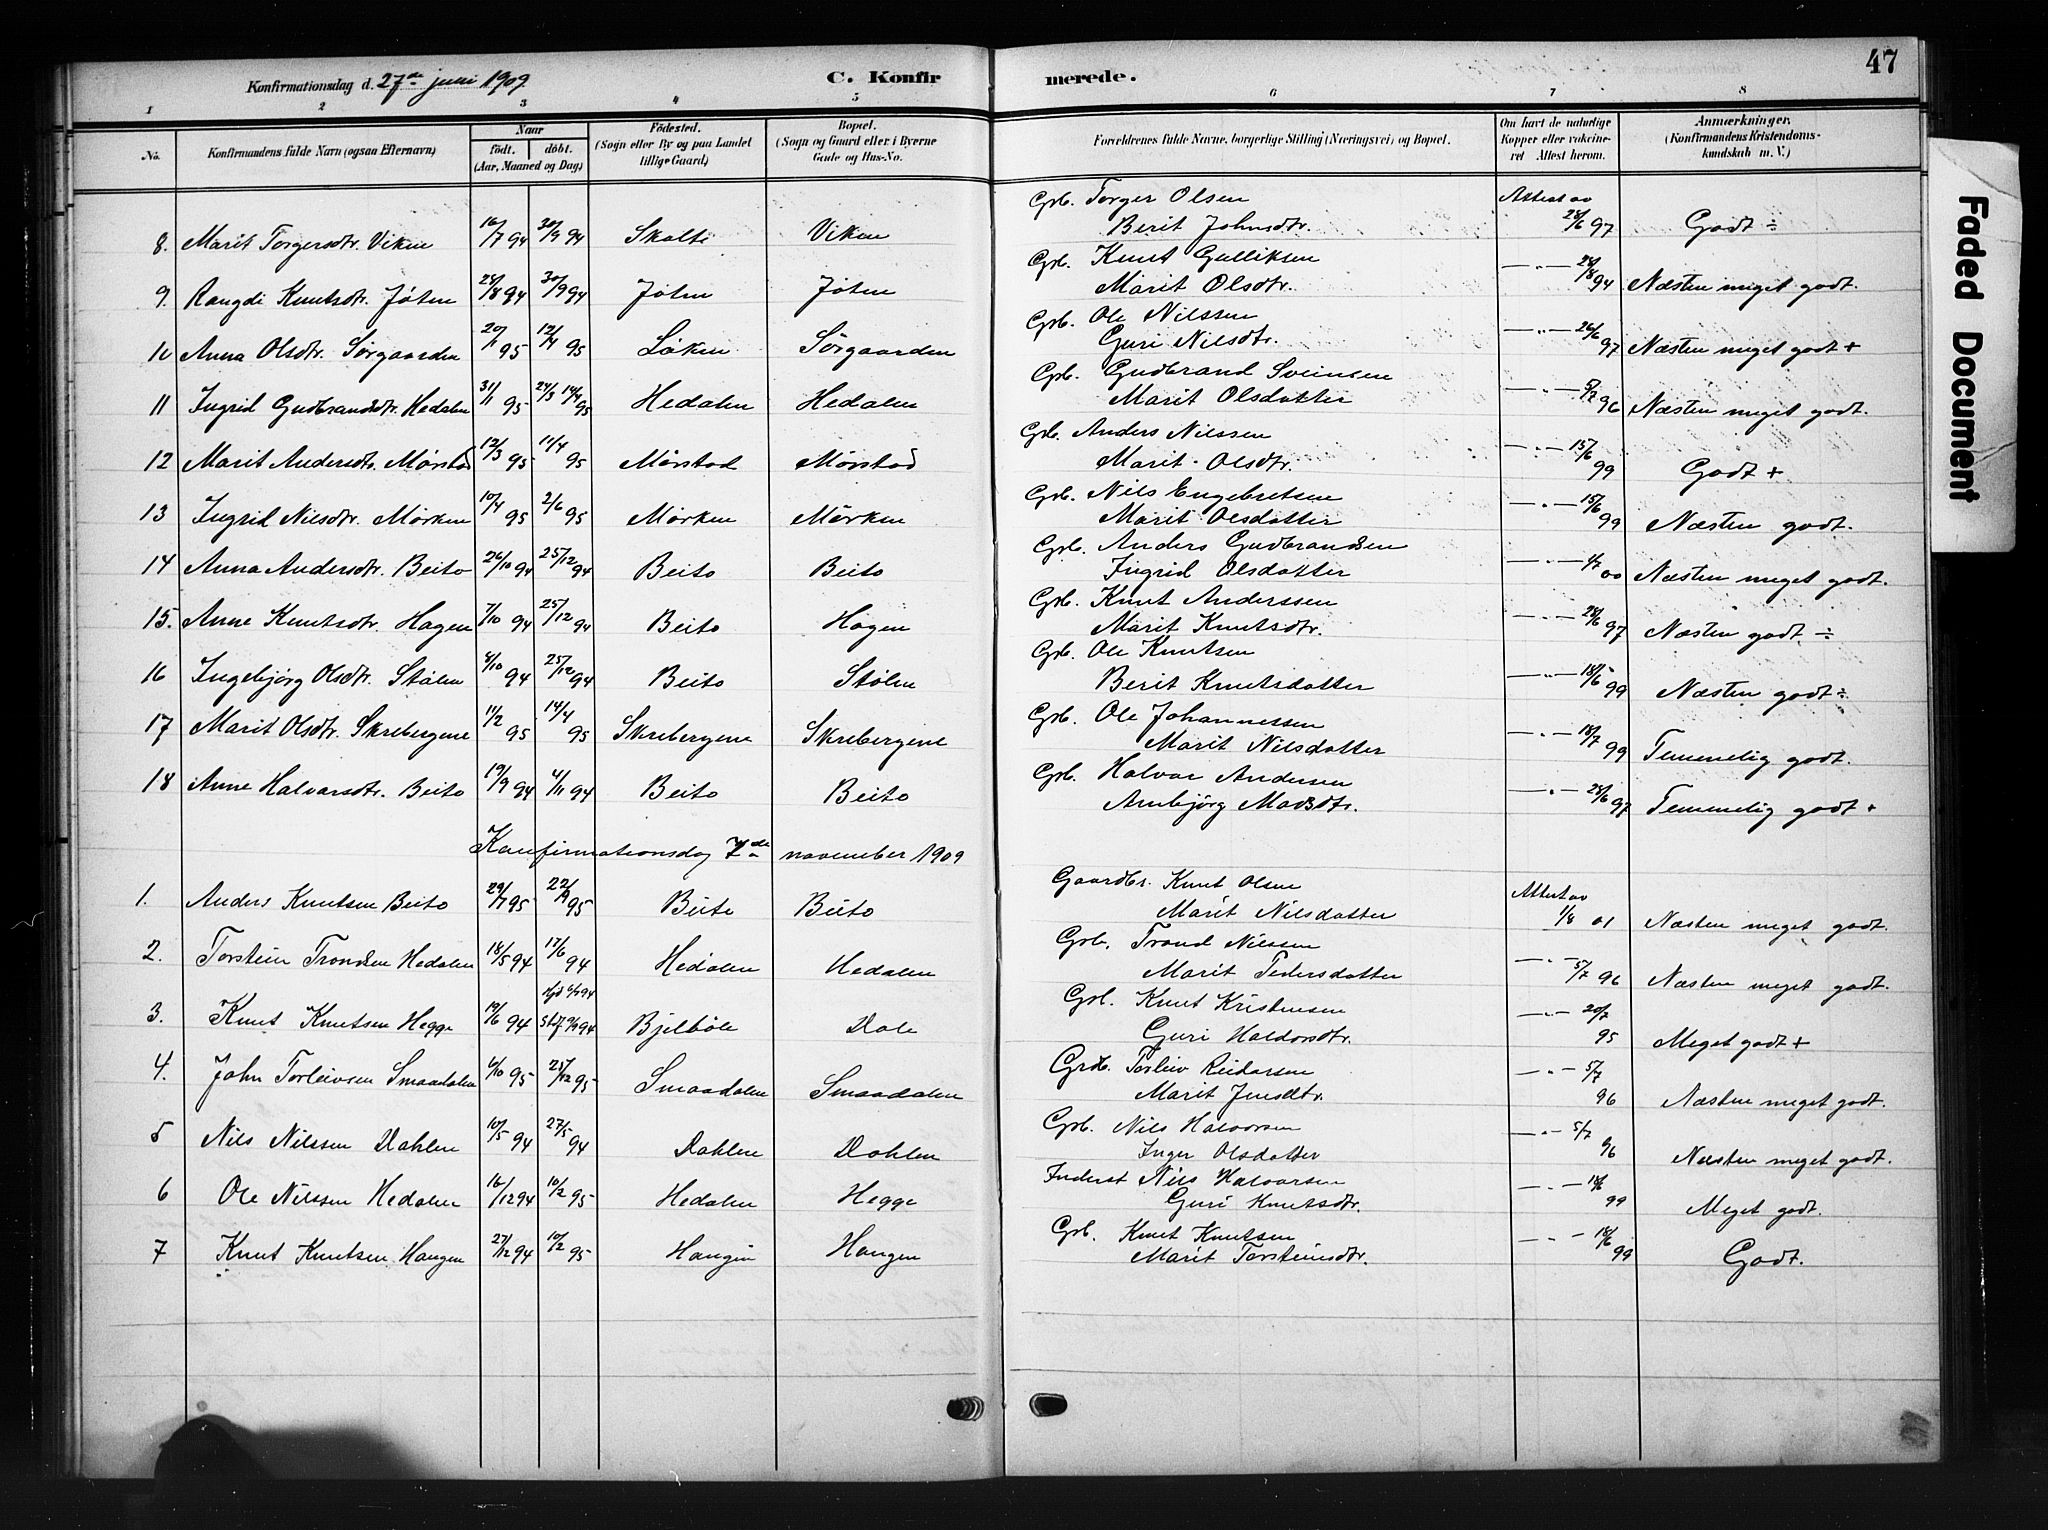 47
Konfirmationsdag d. 27de juni 1909. C. Konfirmerede.
1 2 3 4 5 6 7 8
No. Konfirmandens fulde Navn (ogsaa Efternavn) Naar født. døbt. (Aar, Maaned og Dag) Fødested. (Sogn eller By og paa Landet tillige Gaard) Bopæl. (Sogn og Gaard eller i Byerne Gade og Hus-No. Forældrenes fulde Navne, borgerlige Stilling (Næringsvei) og Bopæl. Om havt de naturlige Kopper eller vakcineret Attest herom. Anmærkninger. (Konfirmandens Kristendomskundskab m. V.)
8. Marit Torgersdtr. Viken 16/7 94 30/9 94 Skolte Viken Grb. Torger Olsen Berit Johnsdtr. Attest av 28/6 97 Godt ÷
9. Rangdi Knutsdtr. Jøten 28/8 94 30/9 94 Jøten Jøten Grb. Knut Gulliksen Marit Olsdtr. — " — 94 Næsten meget godt.
10 Anna Olsdtr. Sørgaarden 20/1 95 12/4 95 Løken Sørgaarden Grb. Ole Nilssen Guri Nilsdtr. — " — 26/6 97 Næsten meget godt +
11 Ingrid Gudbrandsdtr. Hedalen 31/1 95 24/3 14/4 95 Hedalen Hedalen Grb. Gudbrand Sveinsen Marit Olsdatter — " — 5/7 96 Næsten meget godt.
12 Marit Andersdtr. Mørstad 12/3 95 11/4 95 Mørstad Mørstad Grb. Anders Nilssen Marit Olsdtr. — " — 15/6 99 Godt +
13 Ingrid Nilsdtr. Mørken 10/4 95 2/6 95 Mørken Mørken Grb. Nils Engebretsen Marit Olsdatter — " — 15/6 99 Næsten godt.
14 Anna Andersdtr. Beito 26/10 94 25/12 94 Beito Beito Grb. Anders Gudbrandsen Ingrid Olsdatter — " — 4/7 00 Næsten meget godt.
15. Anne Knutsdtr. Hagen 7/10 94 25/12 94 Beito Hagen Grb. Knut Anderssen Marit Knutsdtr. — " — 28/6 97 Næsten godt ÷
16 Ingebjørg Olsdtr. Stølen 8/10 94 25/12 94 Beito Stølen Grb. Ole Knutsen Berit Knutsdatter — " — 18/6 99 Næsten godt ÷
17 Marit Olsdtr. Skrebergene 11/2 95 14/4 95 Skrebergene Skrebergene Grb. Ole Johannessen Marit Nilsdatter — " — 18/7 99 Temmelig godt.
18 Anne Halvarsdtr. Beito 19/9 94 4/11 94 Beito Beito Grb. Halvar Andersen Ambjørg Madsdtr. — " — 28/6 97 Temmelig godt +
Konfirmationsdag 7de november 1909
1. Anders Knutsen Beito 29/7 95 22/9 95 Beito Beito Gaardbr. Knut Olsen Marit Nilsdatter Attest av 1/8 01 Næsten meget godt.
2. Torstein Trondsen Hedalen 18/5 94 17/6 94 Hedalen Hedalen Grb. Trond Nilssen Marit Pedersdatter — " — 5/7 96 Næsten meget godt.
3. Knut Knutsen Hegge 19/6 94 94 94 Bjelbøle Dale Grb. Knut Kristensen Guri Haldorsdtr. — " — 20/7 95 Meget godt +
4. John Torleivsen Smaadalen 6/10 95 25/12 95 Smaadalen Smaadalen Grdb. Torleiv Reidarsen Marit Jensdtr. — " — 5/7 96 Næsten meget godt.
5 Nils Nilssen Dahlen 10/5 94 27/5 94 Dahlen Dahlen Grb. Nils Halvorsen Inger Olsdatter — " — 5/7 96 Næsten meget godt.
6 Ole Nilssen Hedalen 16/12 94 10/2 95 Hedalen Hegge Inderst Nils Halvarsen Guri Knutsdtr. — " — 99 Meget godt.
7 Knut Knutsen Haugen 27/12 94 10/2 95 Haugen Haugen Grb. Knut Knutsen Marit Torsteinsdtr. — " — 18/6 99 Godt.
Faded Document